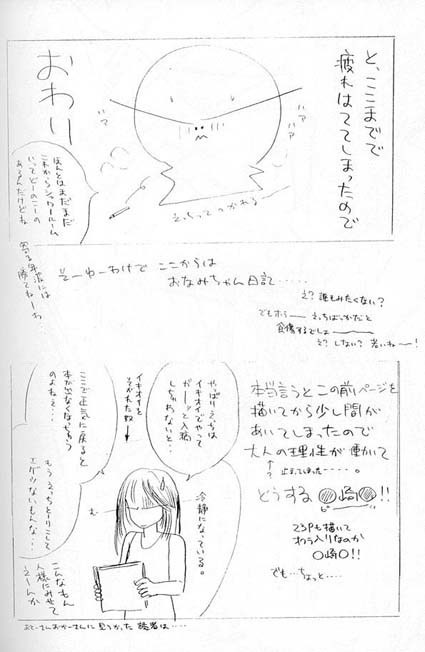 と、ここまでで
疲れはててしまったので
おわり
ハァ
ハァ
えっちってつかれる
ほんとはまだまだ
これからシャワールーム
いってどーのこーの
あるんだけどね
寄る年波には
勝てねーわ
そーゆーわけで ここからは
おなみちゃん日記・・・・・
え？誰もみたくない？
でもホラ― えっちばっかだと
食傷するでしょ―
え？しない？ 若いね―！
本当言うとこの前ページを
描いてから少し間が
あいてしまったので
大人の理性が働いて
↑?
止まってしまった・・・・。
どうする ●崎●!!
23Pも描いて
オワラ入りなのか
○崎○!!
でも…ちょっと・・・・
やっぱりえちは
イキオイでやって
ガーッと入稿
しなれないと・・
イキオイを
そがれた奴
↓
冷静になっている。
ここで正気に戻ると
本が出なくなっちゃう
のよねぇ・・・
もうえっちとゆーにして
エゲツないもんな・・・
む
こんなもん
人様にみせて
えーんか
おとーさんおかーさんに見つかった 読者は・・・・